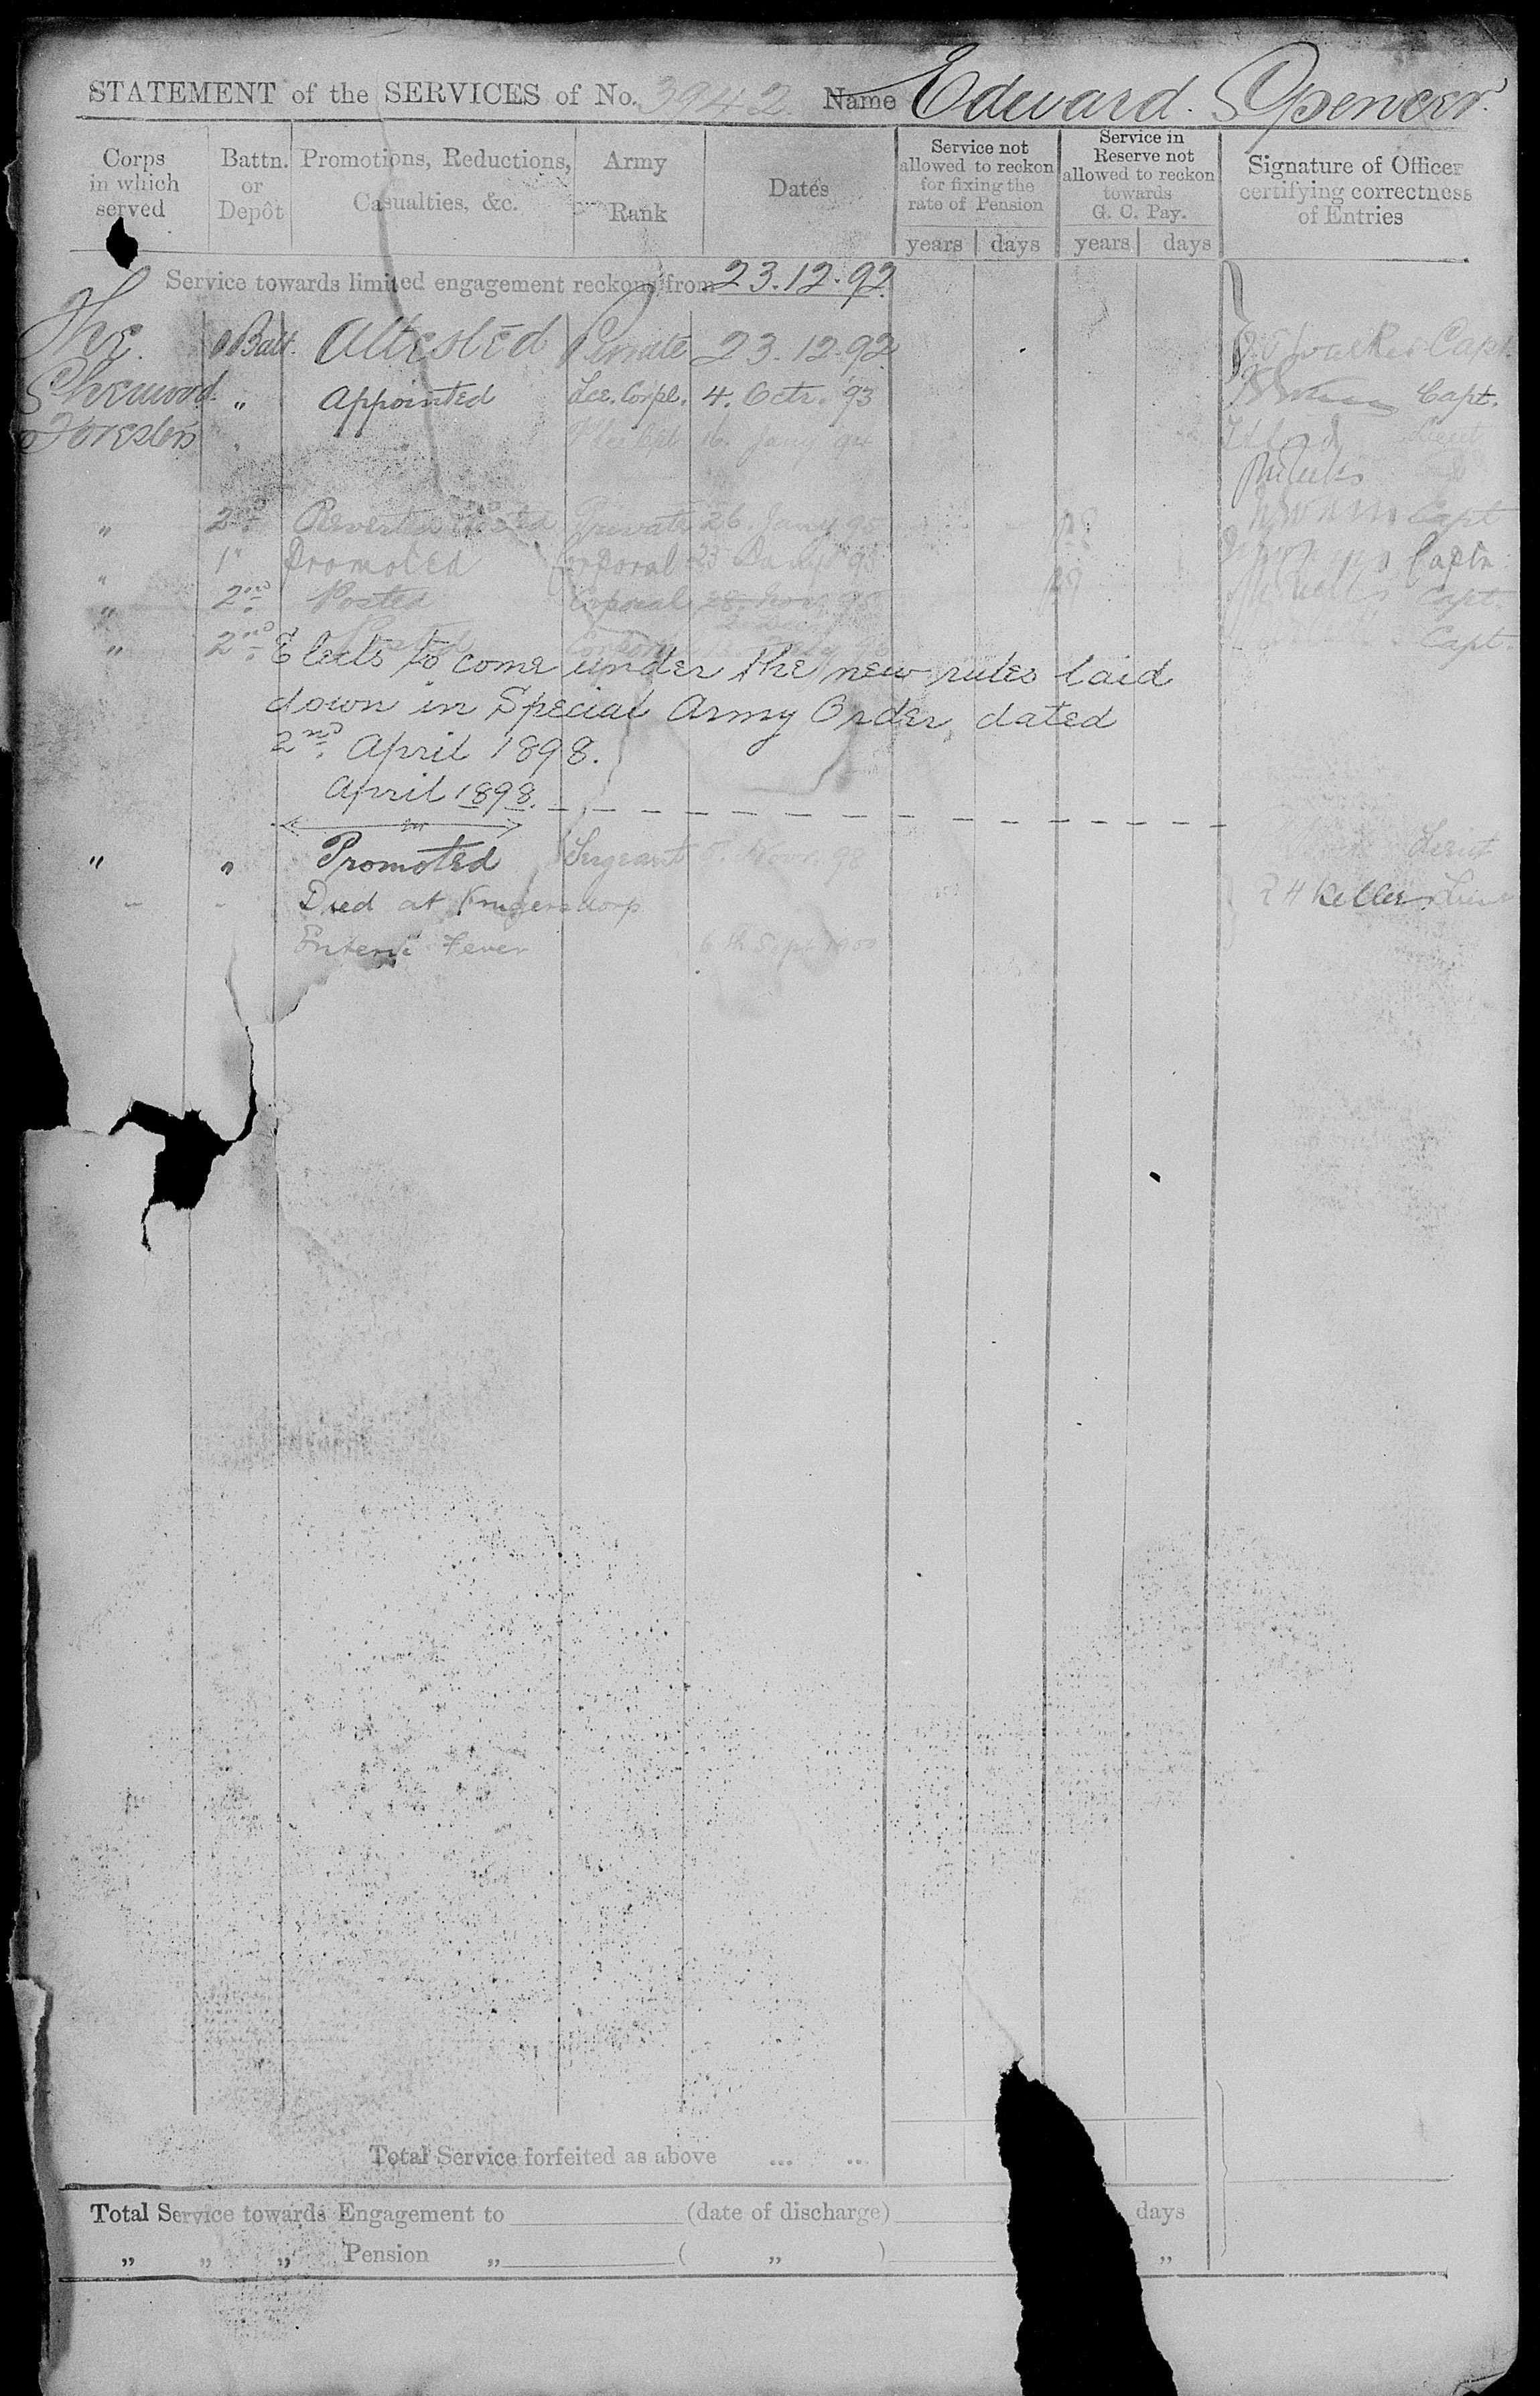 STATEMENT of the SERVICES of No. 3942 Name Edward Spencer.
Corps in which served
Battn. or Depôt
Promotions, Reductions, Casualties, &c.
Army Rank
Dates
Service not allowed to reckon for fixing the rate of Pension
years days
Service in Reserve not allowed to reckon towards G. C. Pay.
years days
Signature of Officer certifying correctness of Entries
Service towards limited engagement reckons from 23.12.92
The Batt. Attested Private 23.12.92 Capt.
Sherwood " Appointed Lce. Corpl. 4. Octr. '93 Capt.
Foresters 16. Jany 94 Lieut
" 2nd Private 26. Jany 95 Capt
" 1st Promoted Corporal Captn.
" 2nd Posted Corporal 28. Novr. 95 Capt.
" 2nd Capt.
Elects to come under the new rules laid
down in Special Army Order, dated
2nd April 1898.
April 1898.
" " Promoted Sergeant 5. Novr. 98 Lieut
Died at Krugersdorp Keller Lieut
Enteric Fever 6th Sept 1900
Total Service forfeited as above ... ...
Total Service towards Engagement to (date of discharge) days
" " " Pension " ( " ) "